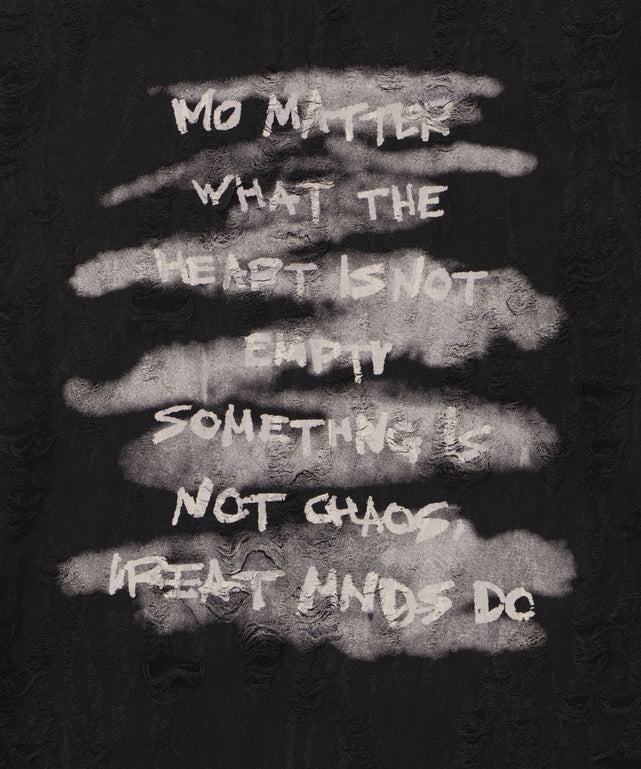 MO MATTER
WHAT THE
HEART IS NOT
EMPTY
SOMETHNG IS
NOT CHAOS,
REAT MNDS DO